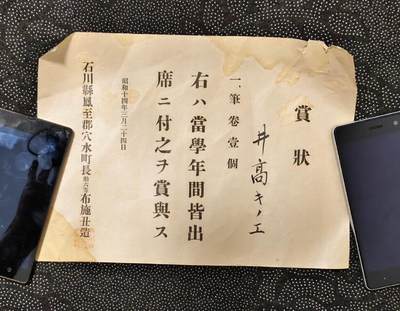 賞狀
井高キノエ
一、筆卷壹個
右ハ當學年間皆出
席ニ付之ヲ賞與ス
昭和十四年三月二十四日
石川縣鳳至郡穴水町長勲八等布施丑造